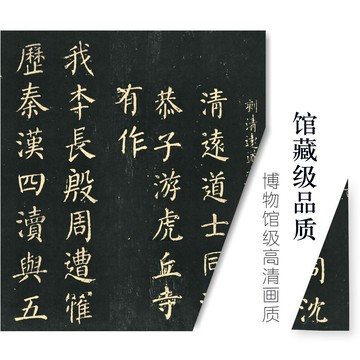 馆藏级品质
博物馆级高清画质
同沈
刻清遠道士
清遠道士同
恭子游虎丘寺
有作
我夲長殷周遭罹
歷秦漢四瀆與五